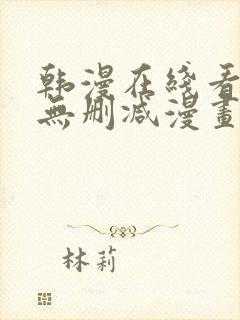 韩漫在线看
無删减漫畫
林莉